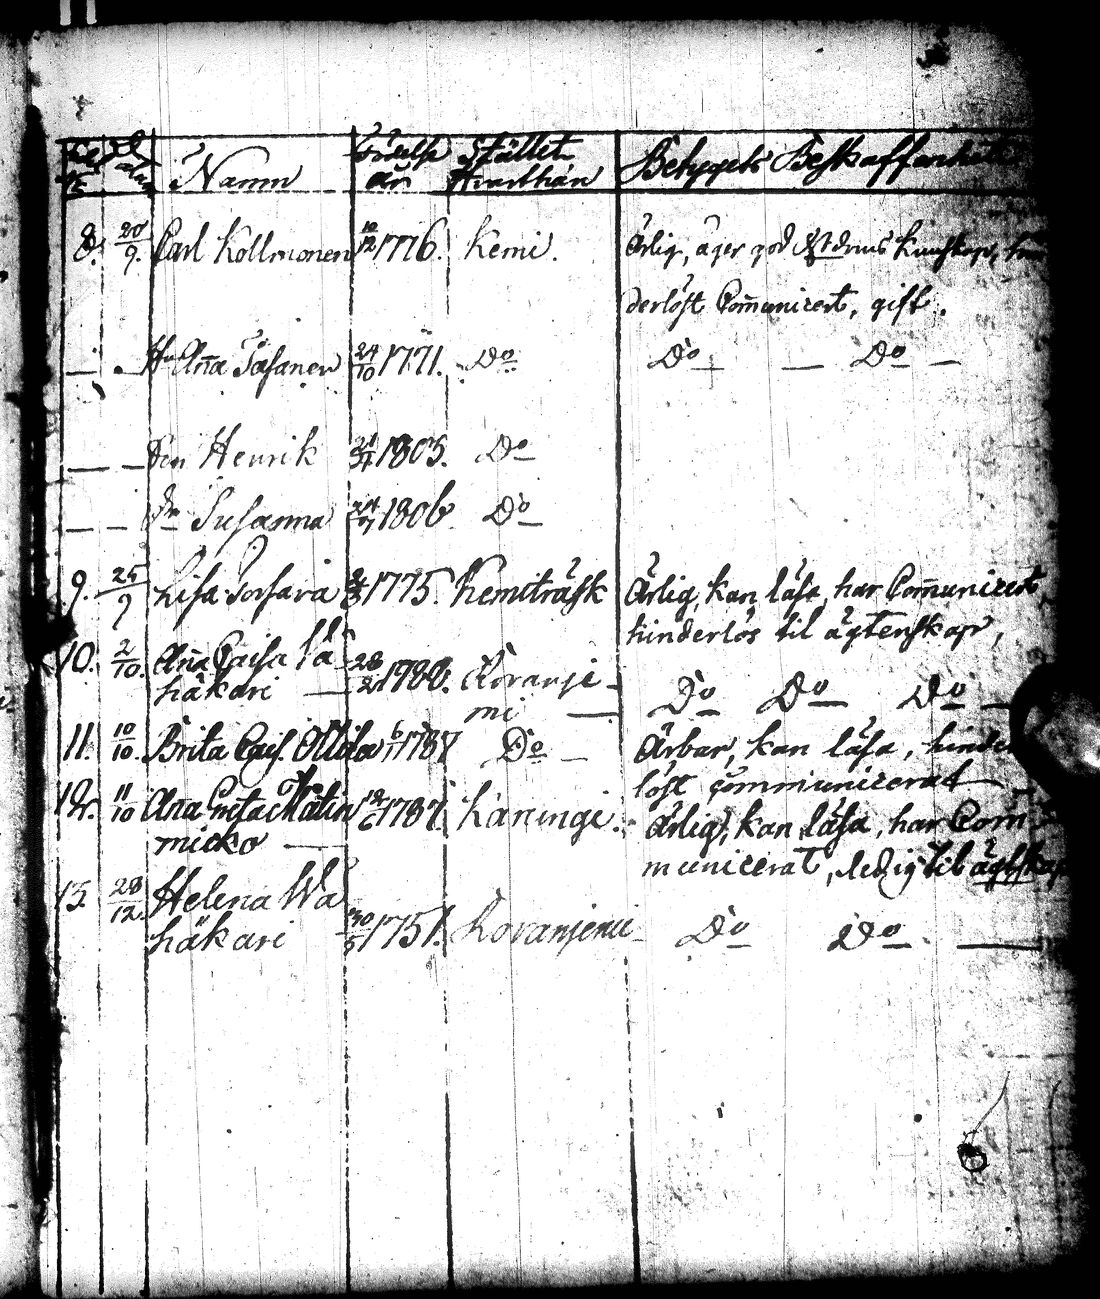 Namn Födelse år Stället hvarthän Betygets Beskaffenhet
8. 20/9. Carl Kollmonen 10/12 1776. Kemi. Ärlig, äger god kunskap, hin
derlöst Com̄unicert, gift.
— . Hu An̄a 24/10 1771. Do Do — Do —
— — Son Henrik 1803. Do
— — Dr Susanna 1806. Do
9. 25/9 Lisa 1775. Kemiträsk Ärlig, kan läsa, har Com̄unicert
hinderlös til ägtenskap,
10. 2/10. An̄a Cajsa Wa
häkari — 1788. Rovanje
mi — Do Do Do —
11. 10/10. Brita Cajs. Ottila 6/1 1787 Do — Ärbar, kan läsa, hinder
löst communicerat
12. 11/10 An̄a Greta
micko — 12/6 1787. Ärlig, kan läsa, har Com
municerat, ledig til ägtskap
13. 28/12. Helena Wa
häkari 30/5 1751. Rovanjemi Do Do —